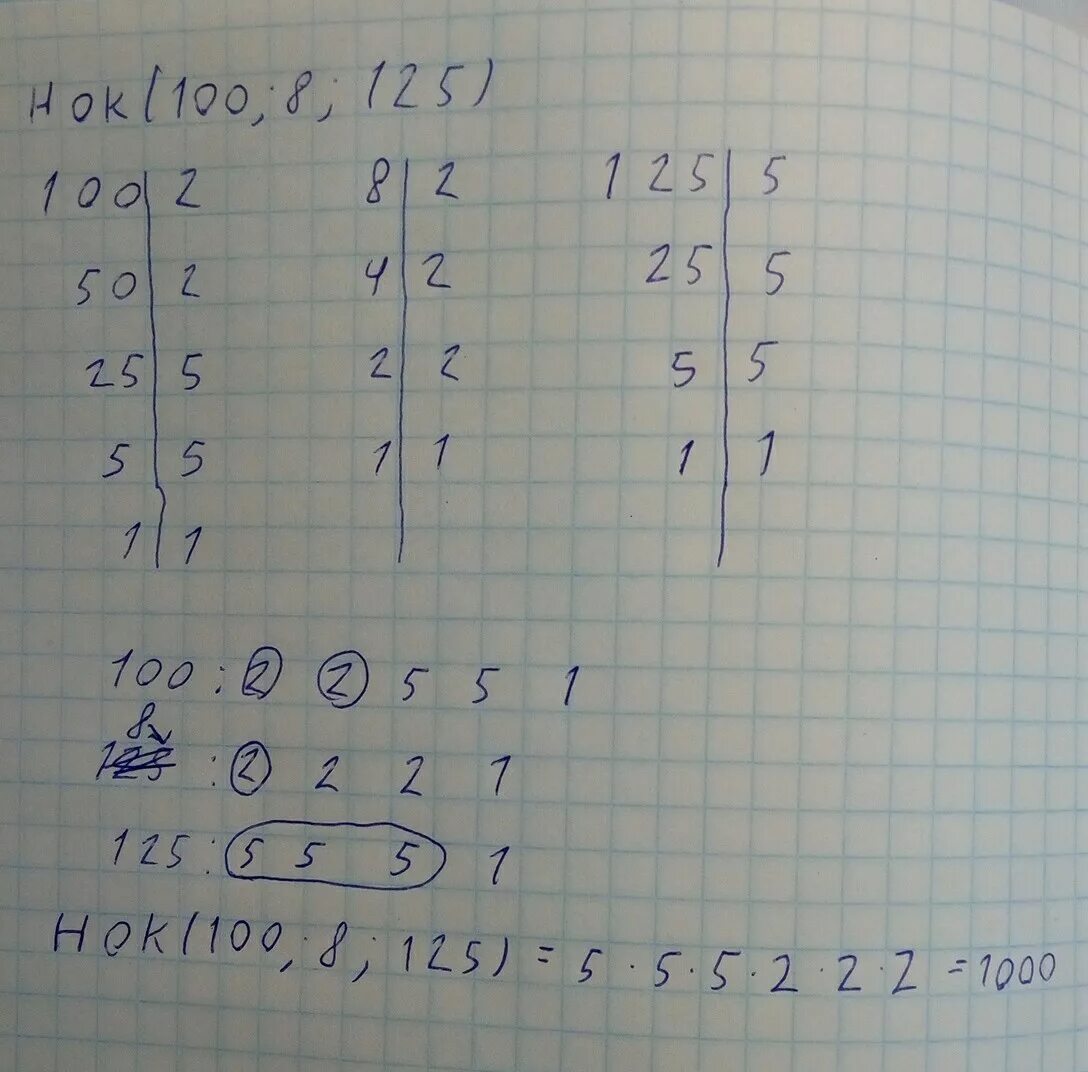 НОК(100;8;125)
100|2 8|2 125|5
50|2 4|2 25|5
25|5 2|2 5|5
5|5 1|1 1|1
1|1
100: 2 2 5 5 1
8
125 : 2 2 2 1
125: 5 5 5 1
НОК(100;8;125) = 5·5·5·2·2·2 = 1000